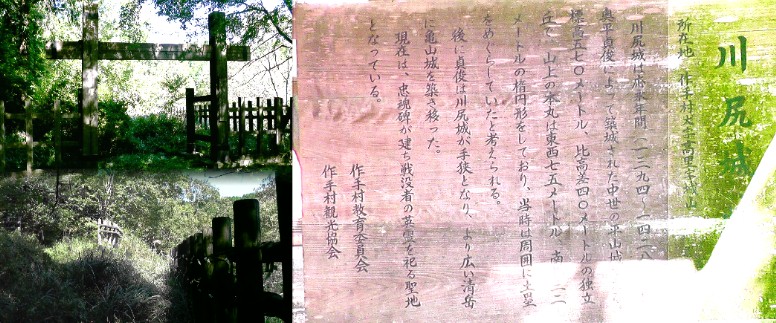 川尻城
所在地 作手村大字高里字城山
川尻城は応永年間(一三九四〜一四二八
奥平貞俊によって築城された中世の平山城
標高五七〇メートル、比高差四〇メートルの独立
丘で、山上の本丸は東西七五メートル、南 二二
メートルの楕円形をしており、当時は周囲に土塁
をめぐらしていたと考えられる。
後に貞俊は川尻城が手狭となり、より広い清岳
に亀山城を築き移った。
現在は、忠魂碑が建ち戦没者の英霊を祀る聖地
となっている。
作手村教育委員会
作手村観光協会